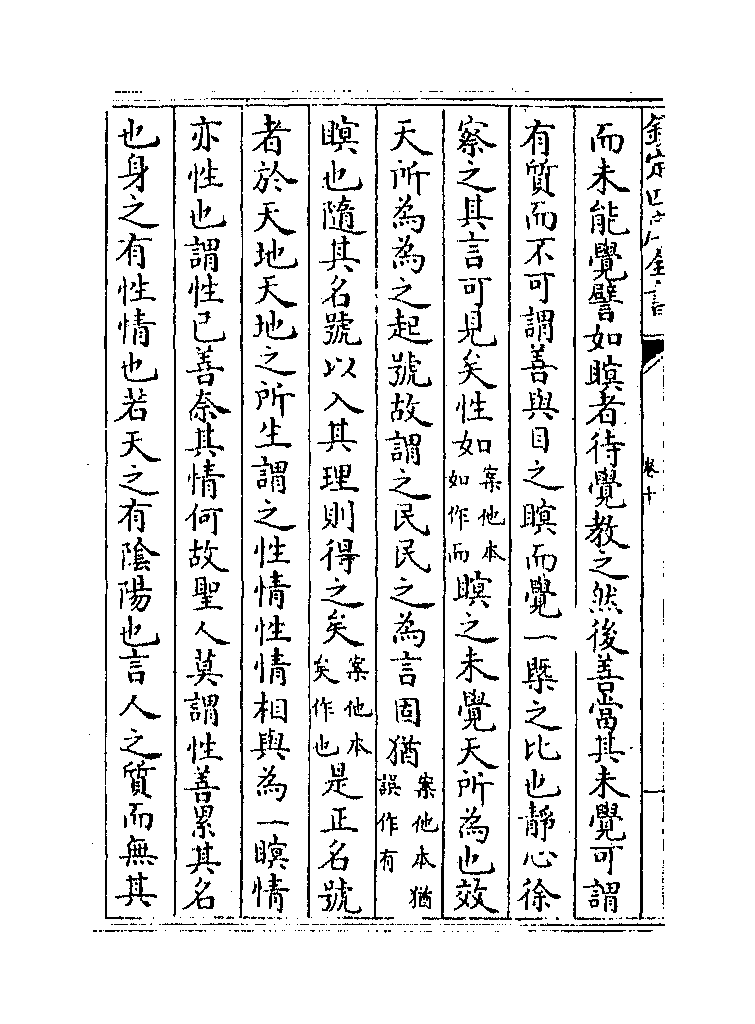 欽定四庫全書
卷十
而未能覺譬如瞑者待覺教之然後善當其未覺可謂
有質而不可謂善與目之瞑而覺一槩之比也靜心徐
察之其言可見矣性如案他本如作而瞑之未覺天所為也效
天所為為之起號故謂之民民之為言固猶案他本猶誤作有
瞑也隨其名號以入其理則得之矣案他本矣作也是正名號
者於天地天地之所生謂之性情性情相與為一瞑情
亦性也謂性已善奈其情何故聖人莫謂性善累其名
也身之有性情也若天之有陰陽也言人之質而無其